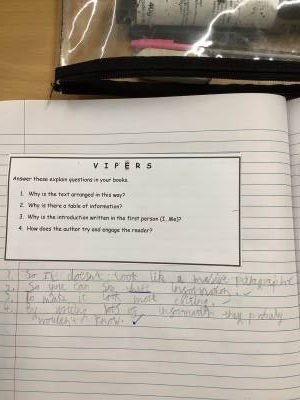 V I P E R S
Answer these explain questions in your books.
1. Why is the text arranged in this way?
2. Why is there a table of information?
3. Why is the introduction written in the first person (I, Me)?
4. How does the author try and engage the reader?
1. So it doesn't look like a massive paragraph
2. So you can see information.
3. To make it look more exiting.
4. By writing lots of information they probaly
wouldn't know.